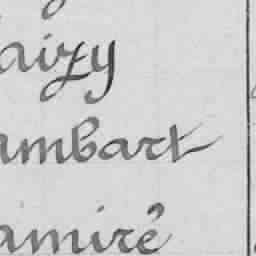 aizy
ambart
amirê